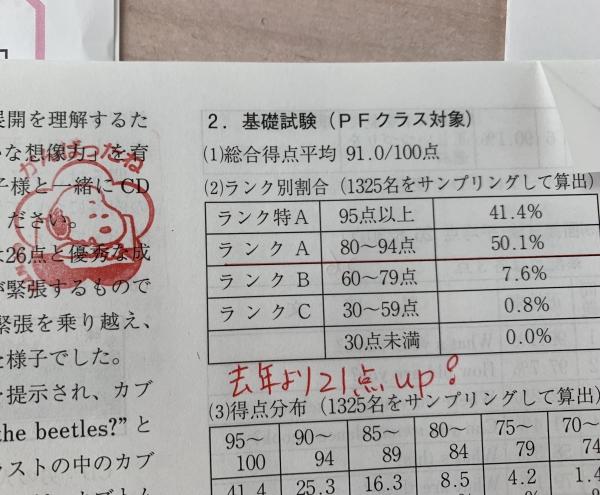 展開を理解するた
な想像力」を育
子様と一緒にCD
ださい。
は26点と優秀な成
が緊張するもので
緊張を乗り越え、
な様子でした。
を提示され、カブ
the beetles?” と
ラストの中のカブ
がんばったね
2．基礎試験（PFクラス対象）
(1)総合得点平均 91.0/100点
(2)ランク別割合（1325名をサンプリングして算出）
ランク特A 95点以上 41.4%
ランク A 80〜94点 50.1%
ランク B 60〜79点 7.6%
ランク C 30〜59点 0.8%
30点未満 0.0%
去年より21点up!
(3)得点分布（1325名をサンプリングして算出）
95〜100 90〜94 85〜89 80〜84 75〜79 70〜74
41.4 25.3 16.3 8.5 4.2 1.4